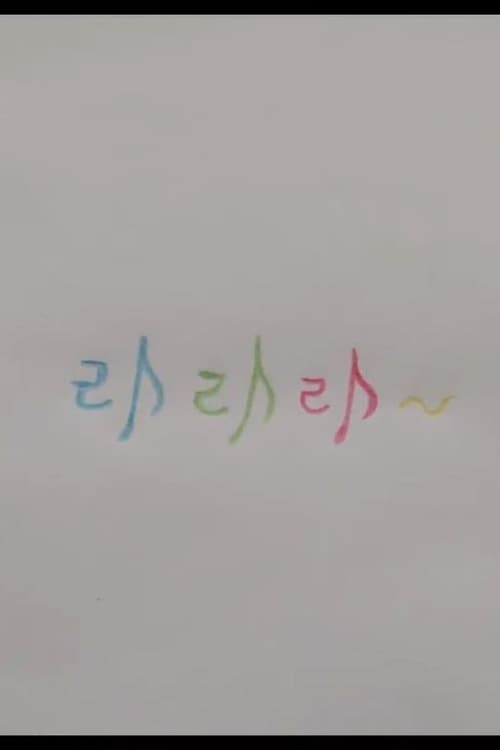 라라라~